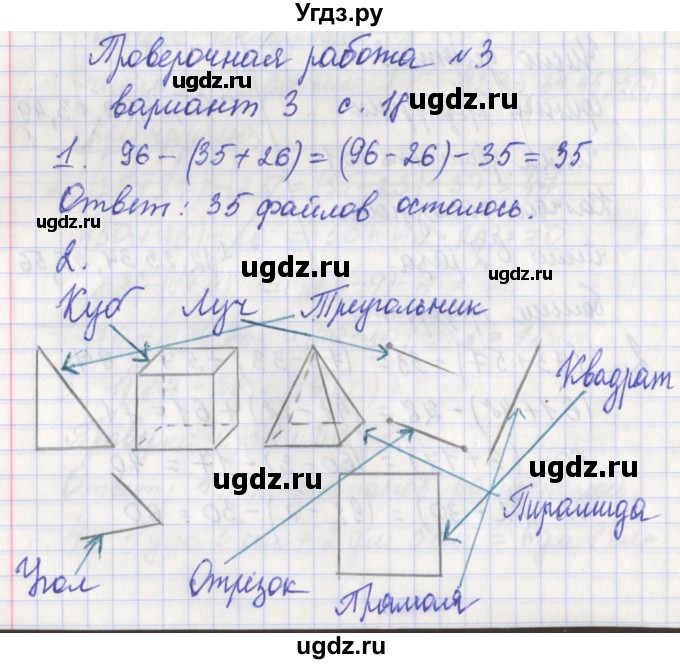 Угдз.ру
Проверочная работа №3
вариант 3 с. 18
1. 96 - (35 + 26) = (96 - 26) - 35 = 35
Ответ: 35 файлов осталось.
2.
Куб Луч Треугольник
Квадрат
Пирамида
Угол Отрезок
Прямая
ugdz.ru
ugdz.ru
ugdz.ru
ugdz.ru
ugdz.ru
ugdz.ru
ugdz.ru
ugdz.ru
ugdz.ru
ugdz.ru
ugdz.ru